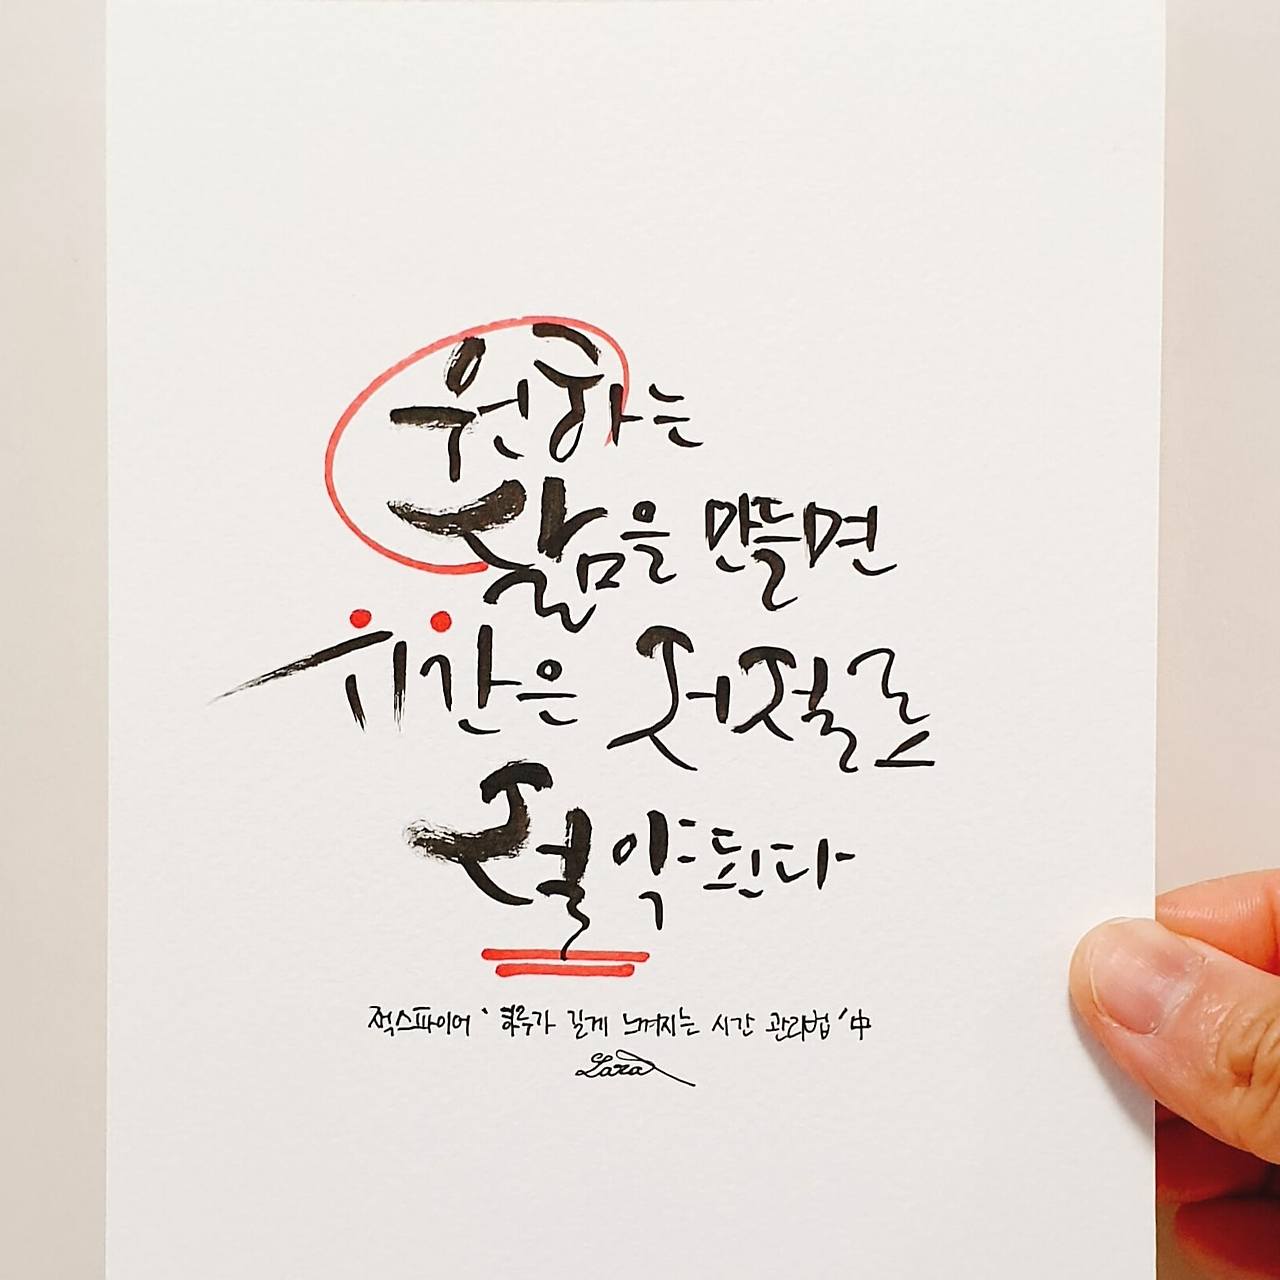 원하는
삶을 만들면
시간은 저절로
절약된다
잭스파이어 '하루가 길게 느껴지는 시간 관리법' 中
Lara